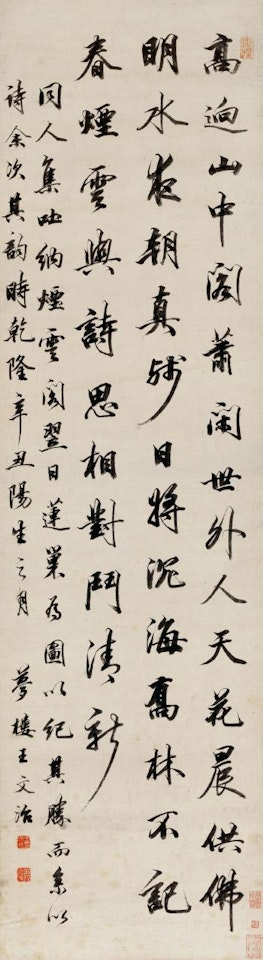 高迥山中閣蕭閑世外人天花晨供佛
明水夜朝真殘日將沉海高林不記
春煙雲與詩思相對鬥清新
同人集吐納煙雲閣翌日蓮巢為圖以紀其勝而系以
詩余次其韻時乾隆辛丑陽生之月 夢樓王文治